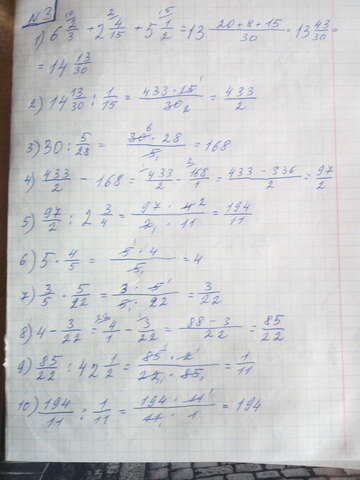 №3
1) 6 2/3 + 2 4/15 + 5 1/2 = 13 (20+8+15)/30 = 13 43/30 =
= 14 13/30
2) 14 13/30 : 1/15 = (433 · 15)/30 = 433/2
3) 30 : 5/28 = (30 · 28)/5 = 168
4) 433/2 - 168 = 433/2 - 168/1 = (433 - 336)/2 = 97/2
5) 97/2 : 2 3/4 = (97 · 4)/(2 · 11) = 194/11
6) 5 · 4/5 = (5 · 4)/5 = 4
7) 3/5 · 5/22 = (3 · 5)/(5 · 22) = 3/22
8) 4 - 3/22 = 4/1 - 3/22 = (88 - 3)/22 = 85/22
9) 85/22 : 42 1/2 = (85 · 2)/(22 · 85) = 1/11
10) 194/11 : 1/11 = (194 · 11)/(11 · 1) = 194